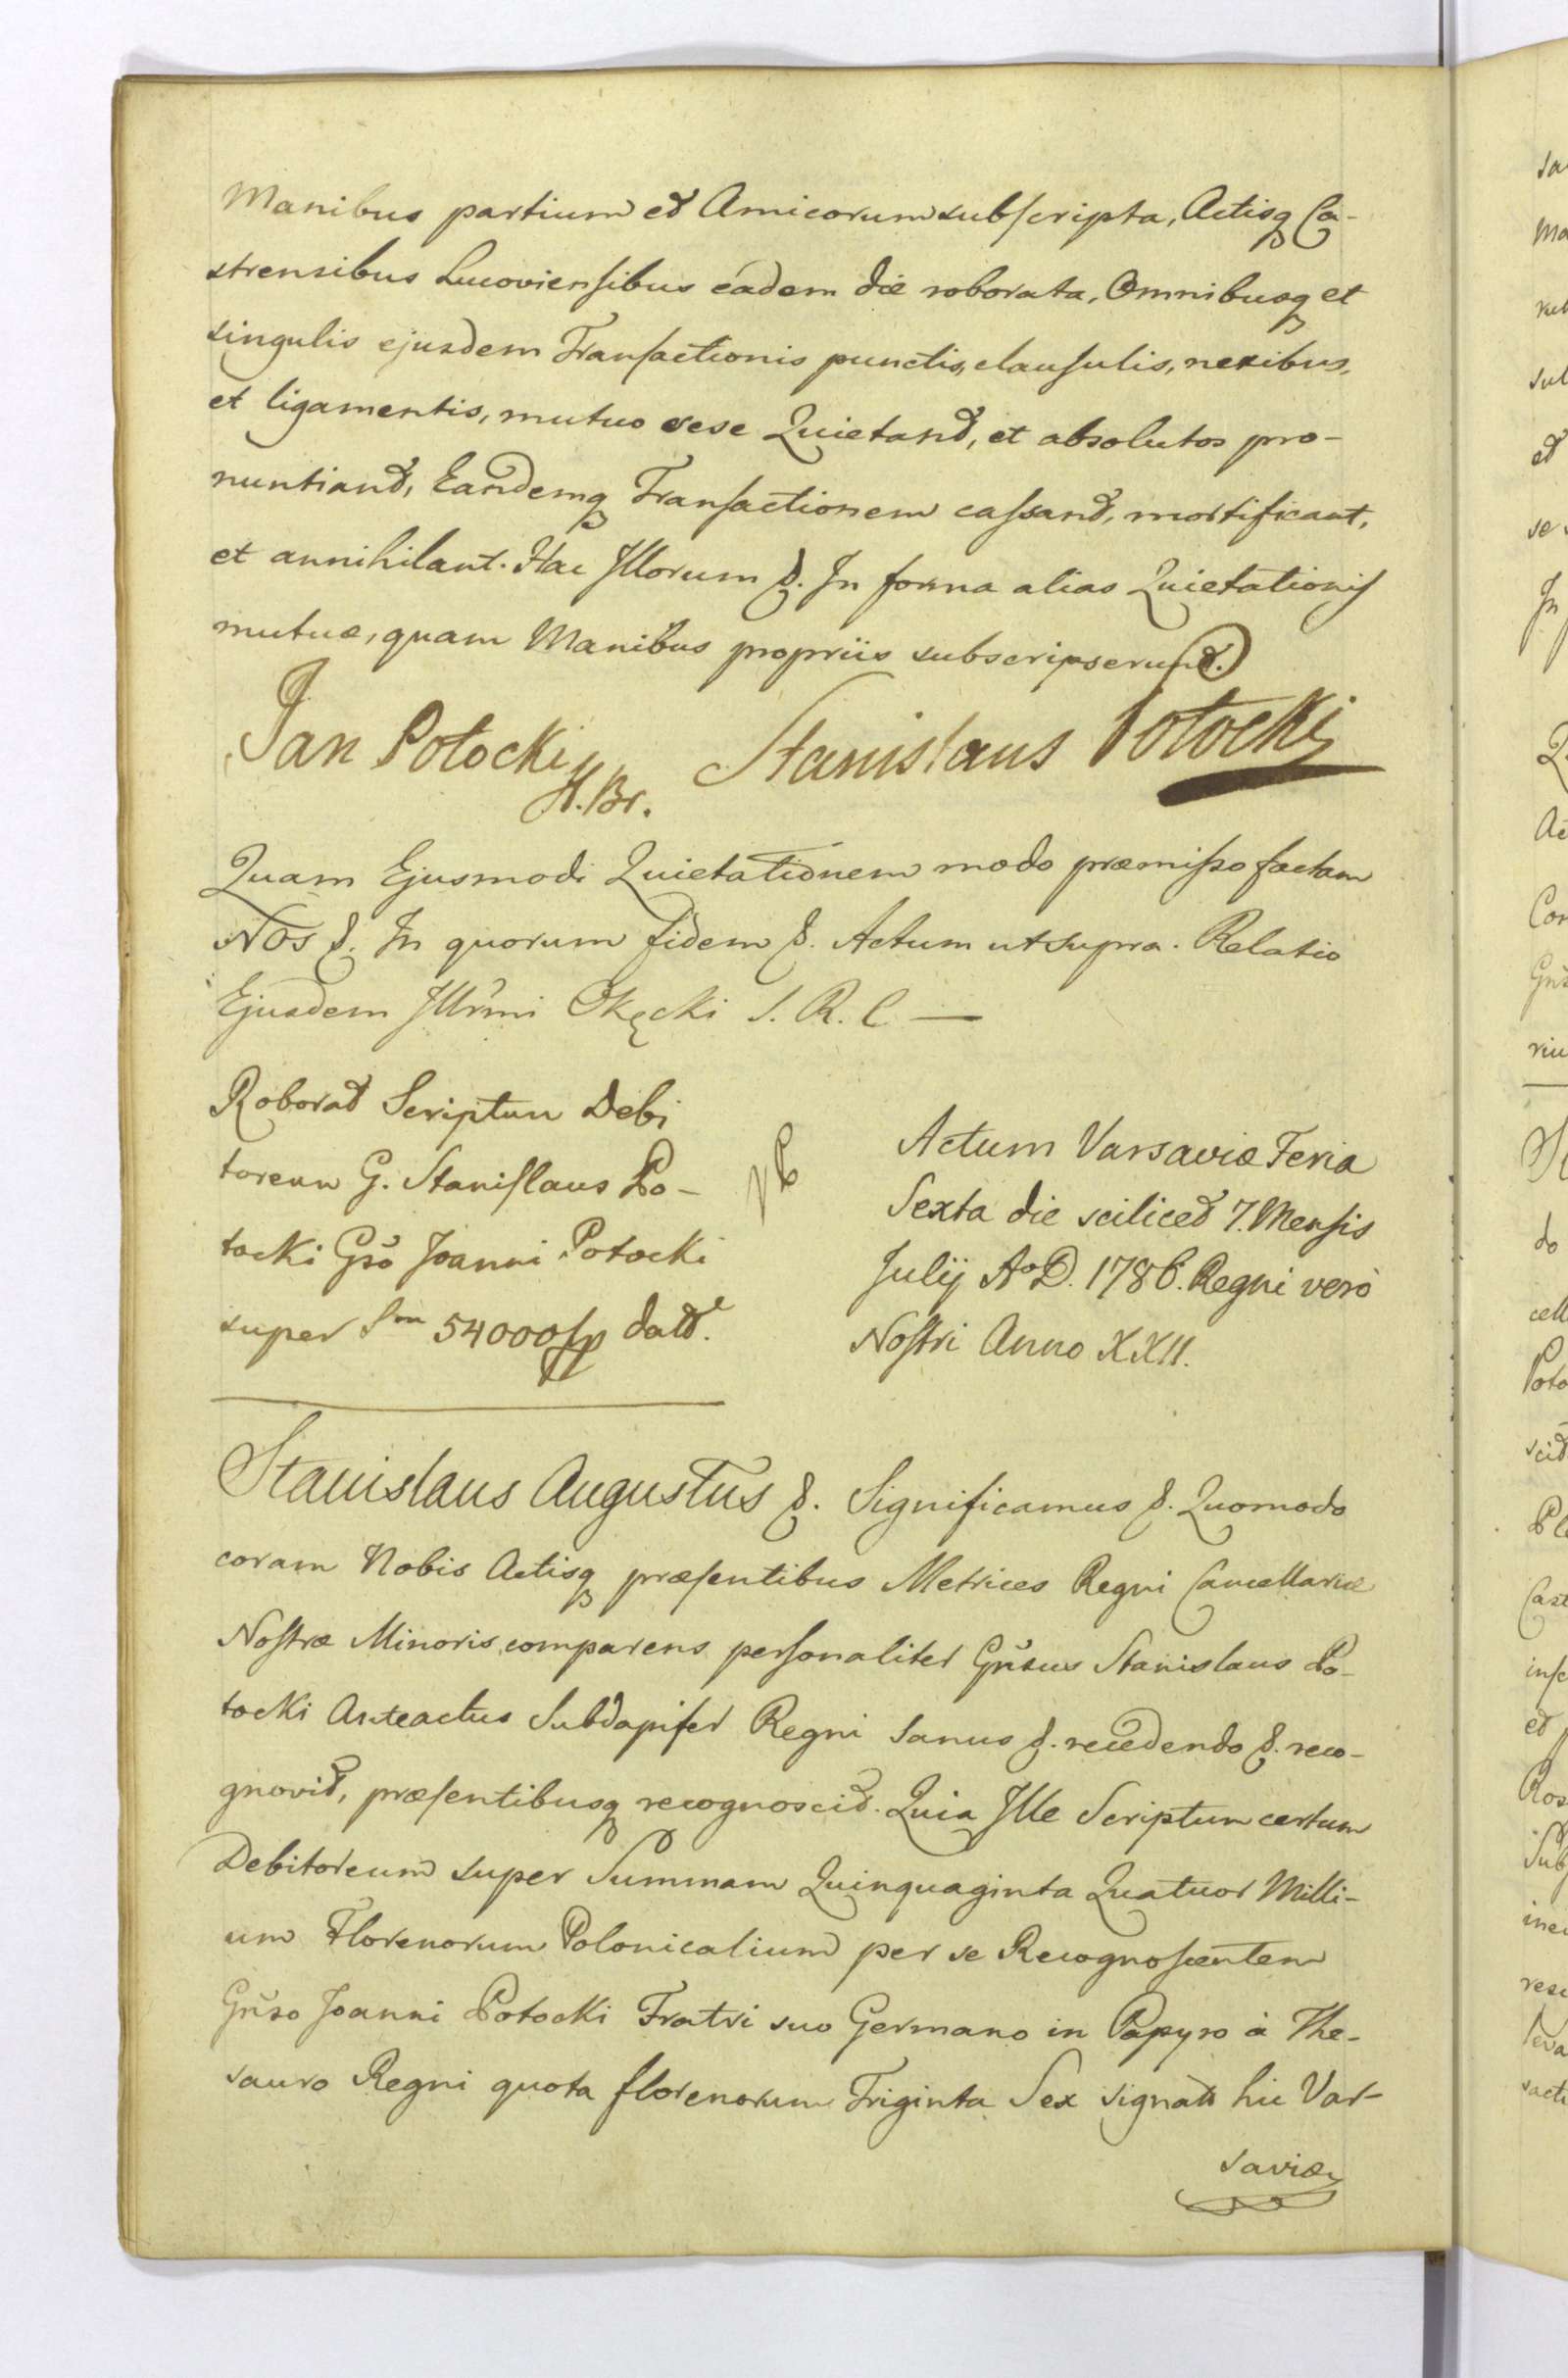 Manibus partium et Amicorum subscripta, Actisq Ca-
strensibus Lucoviensibus eadem die roborata, Omnibusq et
singulis ejusdem Transactionis punctis, clausulis, nexibus,
et ligamentis, mutuo sese Quietand, et absolutos pro-
nuntiand, Eandemq Transactionem cassand, mortificant,
et annihilant. Hac Illorum &. In forma alias Quietationis
mutuæ, quam Manibus propriis subscripserunt.
Jan Potocki Stanislaus Potocki
H. Br.
Quam Ejusmodi Quietationem modo præmisso factam
Nos &. In quorum fidem &. Actum ut supra. Relatio
Ejusdem Illrmi Okęcki S. R. C —
Roborat Scriptum Debi
toreum G. Stanislaus Po-
tocki Gso Joanni Potocki
super Sm 54000 fp datt.
Actum Varsaviæ Feria
Sexta die scilicet 7. Mensis
Julij Ao D. 1786. Regni verò
Nostri Anno XXII.
Stanislaus Augustus &. Significamus &. Quomodo
coram Nobis Actisq præsentibus Metrices Regni Cancellariæ
Nostræ Minoris comparens personaliter Gñsus Stanislaus Po-
tocki Anteactus Subdapifer Regni sanus &. recedendo &. reco-
gnovit, præsentibusq recognoscit. Quia Ille Scriptum certum
Debitoreum super Summam Quinquaginta Quatuor Milli-
um Florenorum Polonicalium per se Recognoscentem
Gñso Joanni Potocki Fratri suo Germano in Papyro à The-
sauro Regni quota florenorum Triginta Sex signatt hic Var-
saviæ